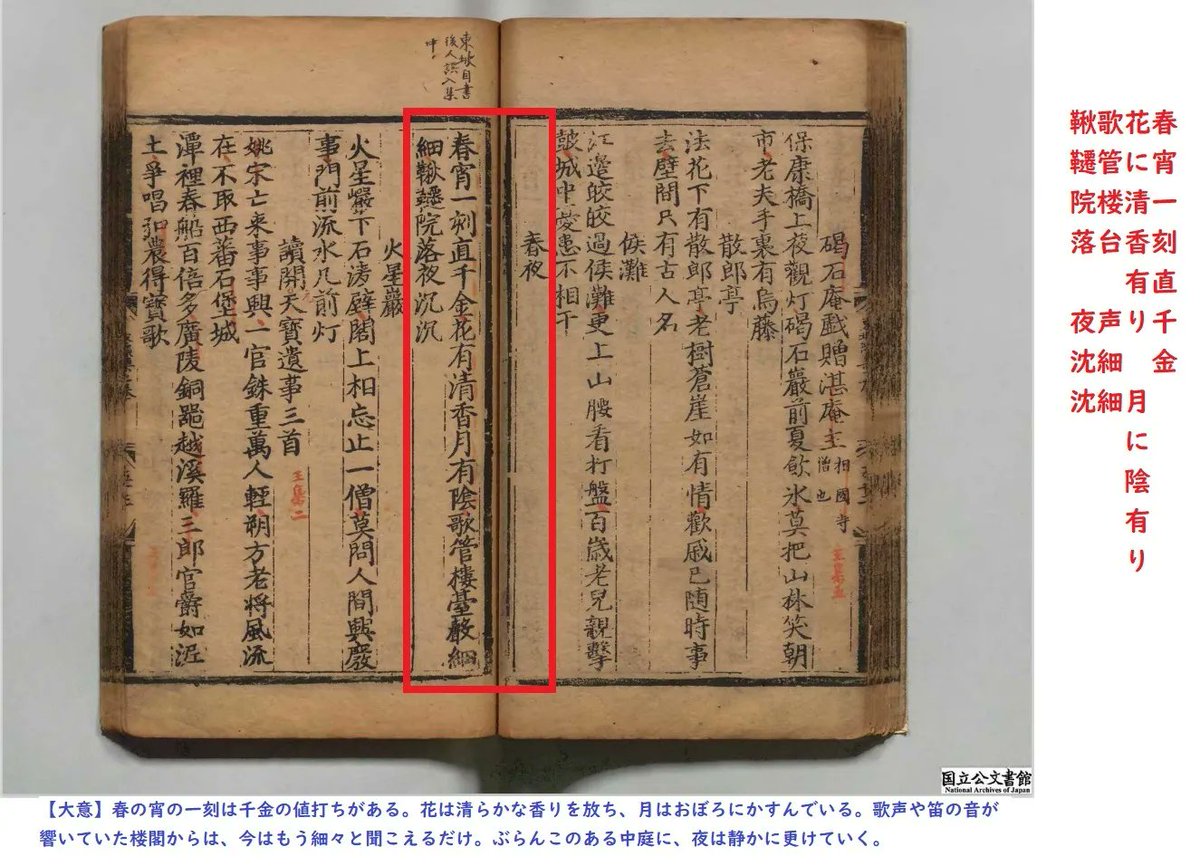 春宵一刻直千金
花に清香有り　月に陰有り
歌管楼台　声細細
鞦韆院落　夜沈沈
碣石庵戲贈湛庵主 相國寺僧也
保康橋上夜觀灯碣石巖前夏飲氷莫把山林笑朝
市老夫手裏有烏藤
散郎亭
法花下有散郎亭老樹蒼崖如有情歡戚已隨時事
去壁間只有古人名
候灘
江邊皎皎過侯灘更上山腰看打盤百歲老兒親擊
鼓城中憂患不相干
春夜
東坡自書
後人誤入集
中
春宵一刻直千金花有清香月有陰歌管樓臺聲細
細鞦韆院落夜沉沉
火星巖
火星巖下石湧壁閣上相忘止一僧莫問人間興廢
事門前流水几前灯
讀開天寶遺事三首 王集二
姚宋亡来事事興一官銖重萬人輕朔方老將風流
在不取西蕃石堡城
潭裡春船百倍多廣陵銅器越溪羅三郎官爵如泥
土爭唱弘農得寶歌
国立公文書館
National Archives of Japan
【大意】春の宵の一刻は千金の値打ちがある。花は清らかな香りを放ち、月はおぼろにかすんでいる。歌声や笛の音が
響いていた楼閣からは、今はもう細々と聞こえるだけ。ぶらんこのある中庭に、夜は静かに更けていく。